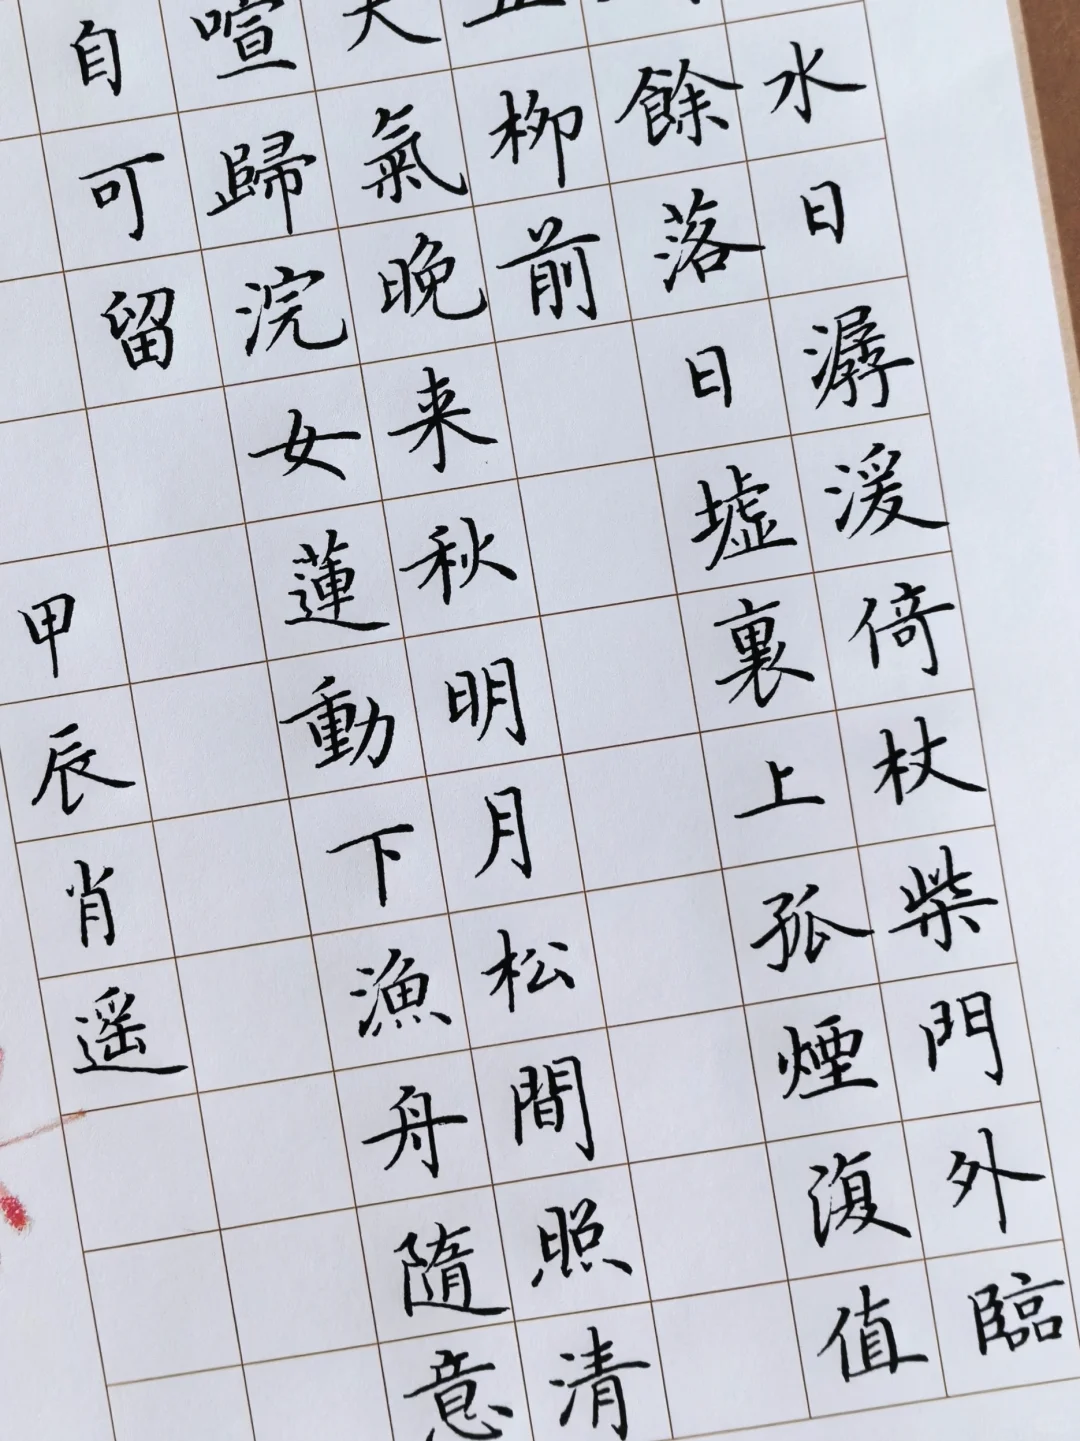 水日潺湲倚杖柴門外臨
餘落日墟裏上孤煙復值
柳前
天氣晚来秋明月松間照清
喧歸浣女蓮動下漁舟隨意
自可留
甲辰肖遥